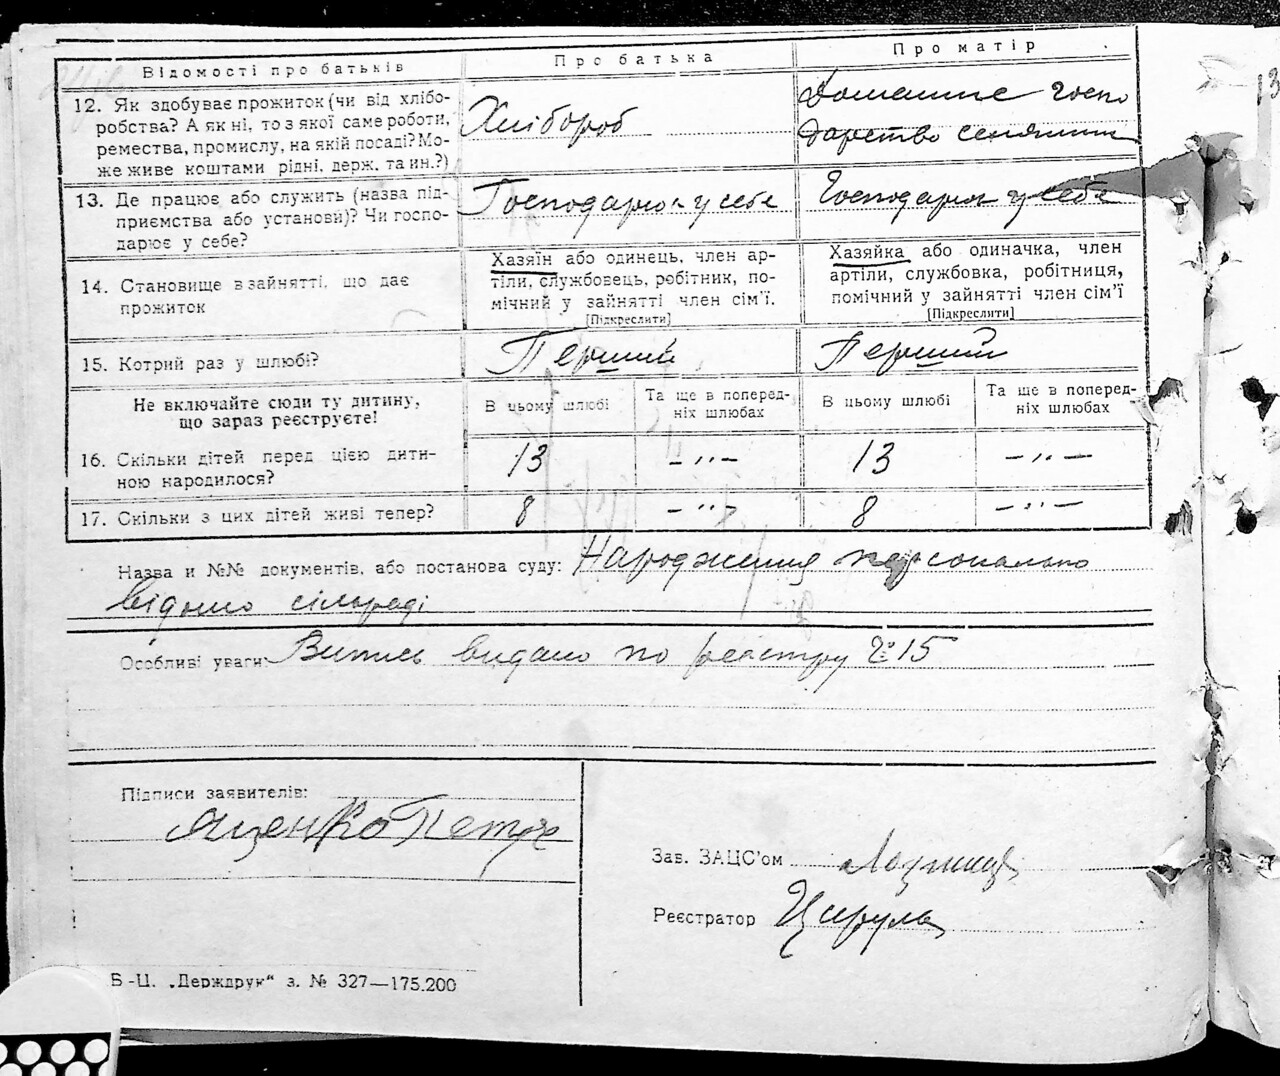 Відомості про батьків
Про батька
Про матір
12. Як здобуває прожиток (чи від хлібо-
робства? А як ні, то з якої саме роботи,
ремества, промислу, на якій посаді? Мо-
же живе коштами рідні, держ. та ин.?)
Хлібороб
Домашнє госпо
дарство селянин
13. Де працює або служить (назва під-
приємства або установи)? Чи госпо-
дарює у себе?
Господарює у себе
Господарює у себе
14. Становище в занятті, що дає
прожиток
Хазяїн або одинець, член ар-
тіли, службовець, робітник, по-
мічний у зайнятті член сім'ї.
[Підкреслити]
Хазяйка або одиначка, член
артіли, службовка, робітниця,
помічний у зайнятті член сім'ї
[Підкреслити]
15. Котрий раз у шлюбі?
Перший
Перший
Не включайте сюди ту дитину,
що зараз реєструєте!
В цьому шлюбі
Та ще в поперед-
ніх шлюбах
В цьому шлюбі
Та ще в поперед-
ніх шлюбах
16. Скільки дітей перед цією дити-
ною народилося?
13
— „ —
13
— „ —
17. Скільки з цих дітей живі тепер?
8
— „ —
8
— „ —
Назва и №№ документів, або постанова суду: Народження персонально
відомо сільраді
Особливі уваги: Випись видано по реєстру № 15
Підписи заявителів:
Яценко Петро
Зав. ЗАЦС'ом
Реєстратор Цируль
Б-Ц. „Держдрук“ з. № 327—175.200
13